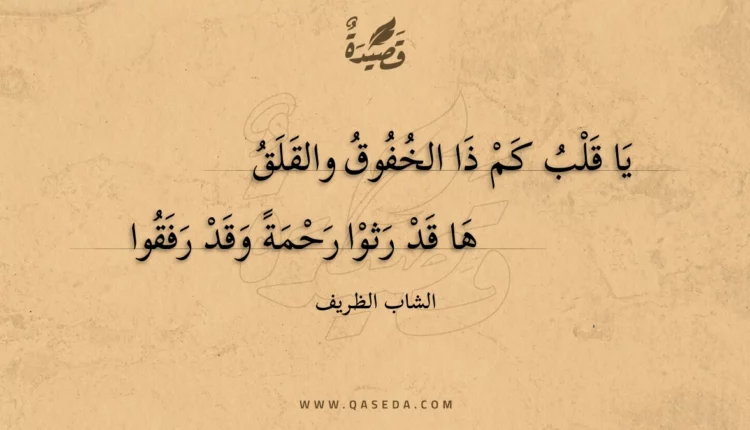 قَصِيدَةٌ
يَا قَلْبُ كَمْ ذَا الخُفُوقُ والقَلَقُ
هَا قَدْ رَثوْا رَحْمَةً وَقَدْ رَفَقُوا
الشاب الظريف
WWW.QASEDA.COM